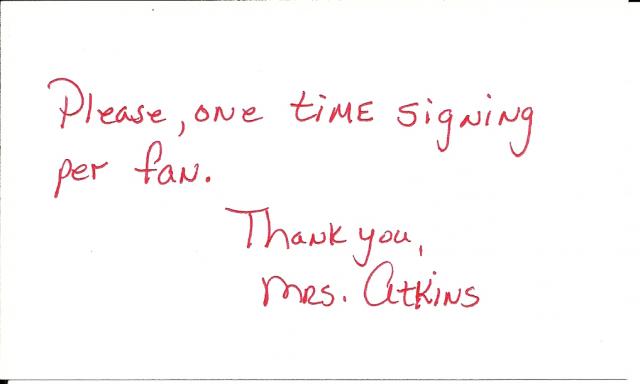 Please, one time signing
per fan.
Thank you,
Mrs. Atkins